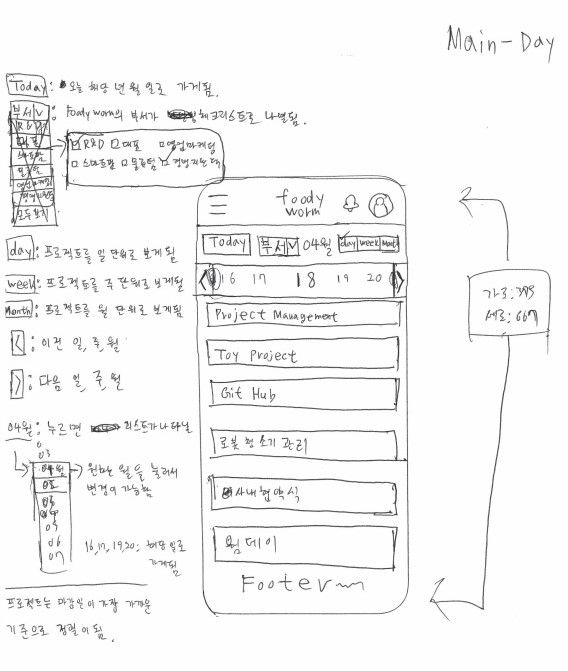 Main-Day
Today : 오늘 해당 년 월 일로 가게됨.
부서 V : Foodyworm의 부서가 체크리스트로 나열됨.
R&D
대표
스마트팜
모두보기
R&D 대표 영업마케팅
스마트팜 돌봄팀 경영지원팀
day : 프로젝트를 일 단위로 보게 됨
week : 프로젝트를 주 단위로 보게됨
Month : 프로젝트를 월 단위로 보게됨
< : 이전 일, 주, 월
> : 다음 일, 주, 월
04월 : 누르면 리스트가 나타남
03
04월
→ 원하는 월을 눌러서
변경이 가능함
05
06
07
16, 17, 19, 20 : 해당 일로
가게됨
프로젝트는 마감일이 가장 가까운
기준으로 정렬이 됨.
foody
worm
Today 부서 V 04월 day week Month
< 16 17 18 19 20 >
Project Management
Toy Project
Git Hub
로봇청소기 관리
사내협약식
웜데이
Footer
가로:375
세로:667